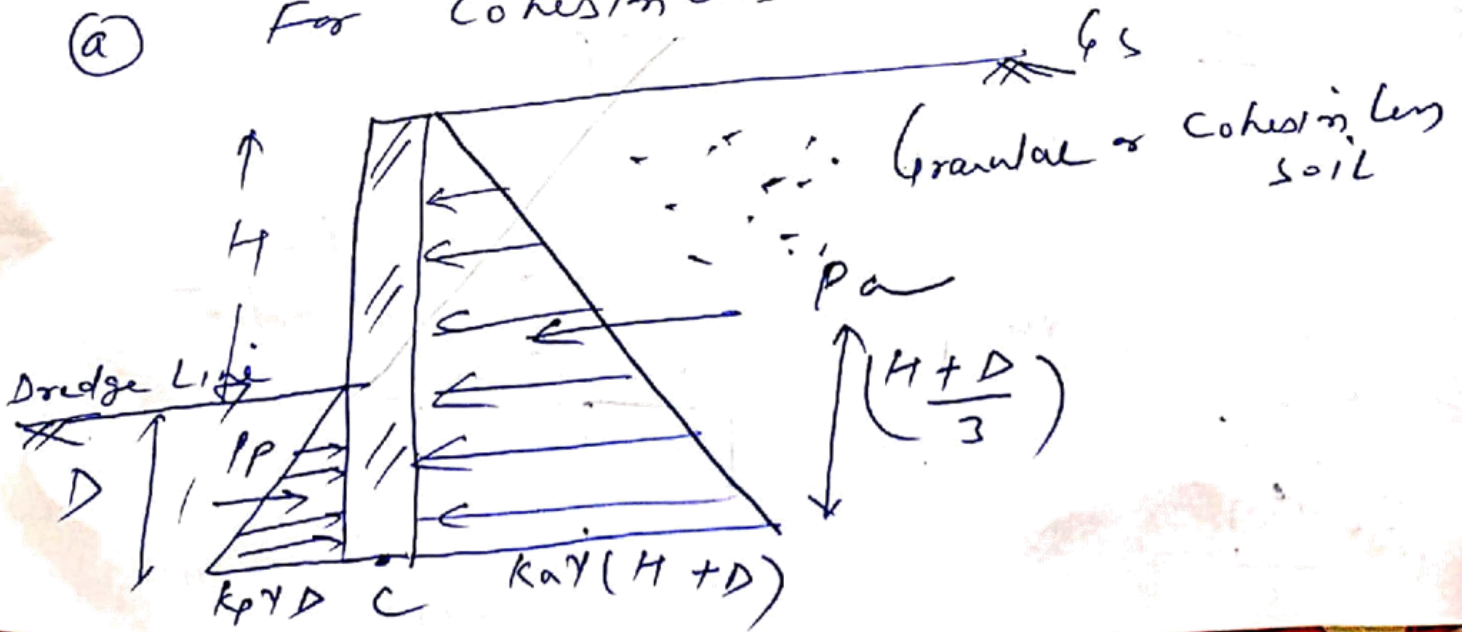 (a) For Cohesion
GS
Granular or Cohesion less
soil
H
Pa
(H + D / 3)
Dredge Line
Pp
D
kpγD C kaγ(H + D)